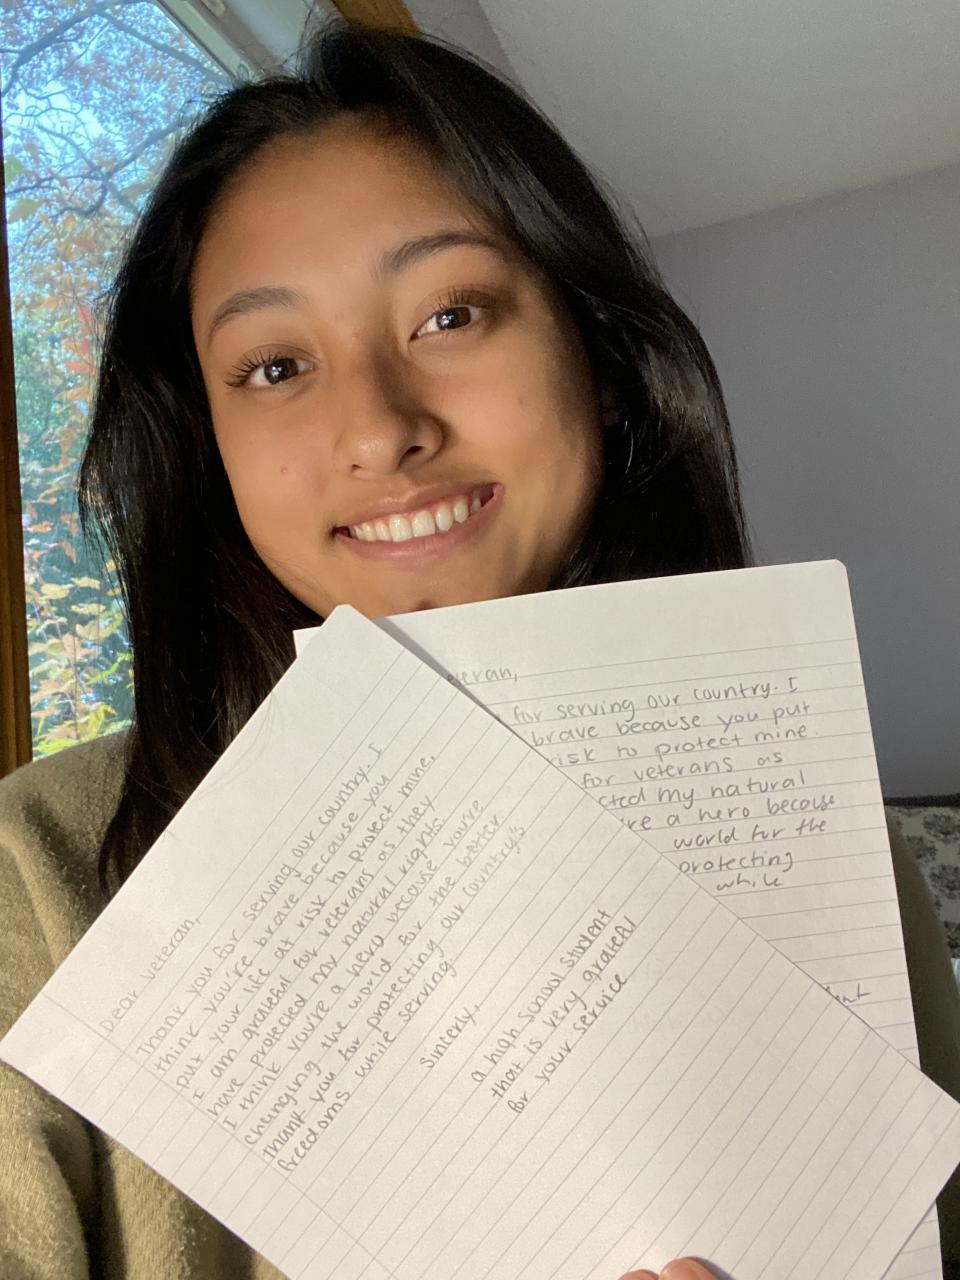 Dear Veteran,
Thank you for serving our country. I
think you're brave because you
put your life at risk to protect mine.
I am grateful for veterans as they
have protected my natural rights.
I think you're a hero because you're
changing the world for the better.
Thank you for protecting our country's
freedoms while serving.
Sincerly,
a high school student
that is very grateful
for your service
eteran,
for serving our country. I
brave because you put
risk to protect mine.
for veterans as
cted my natural
're a hero because
world for the
protecting
while